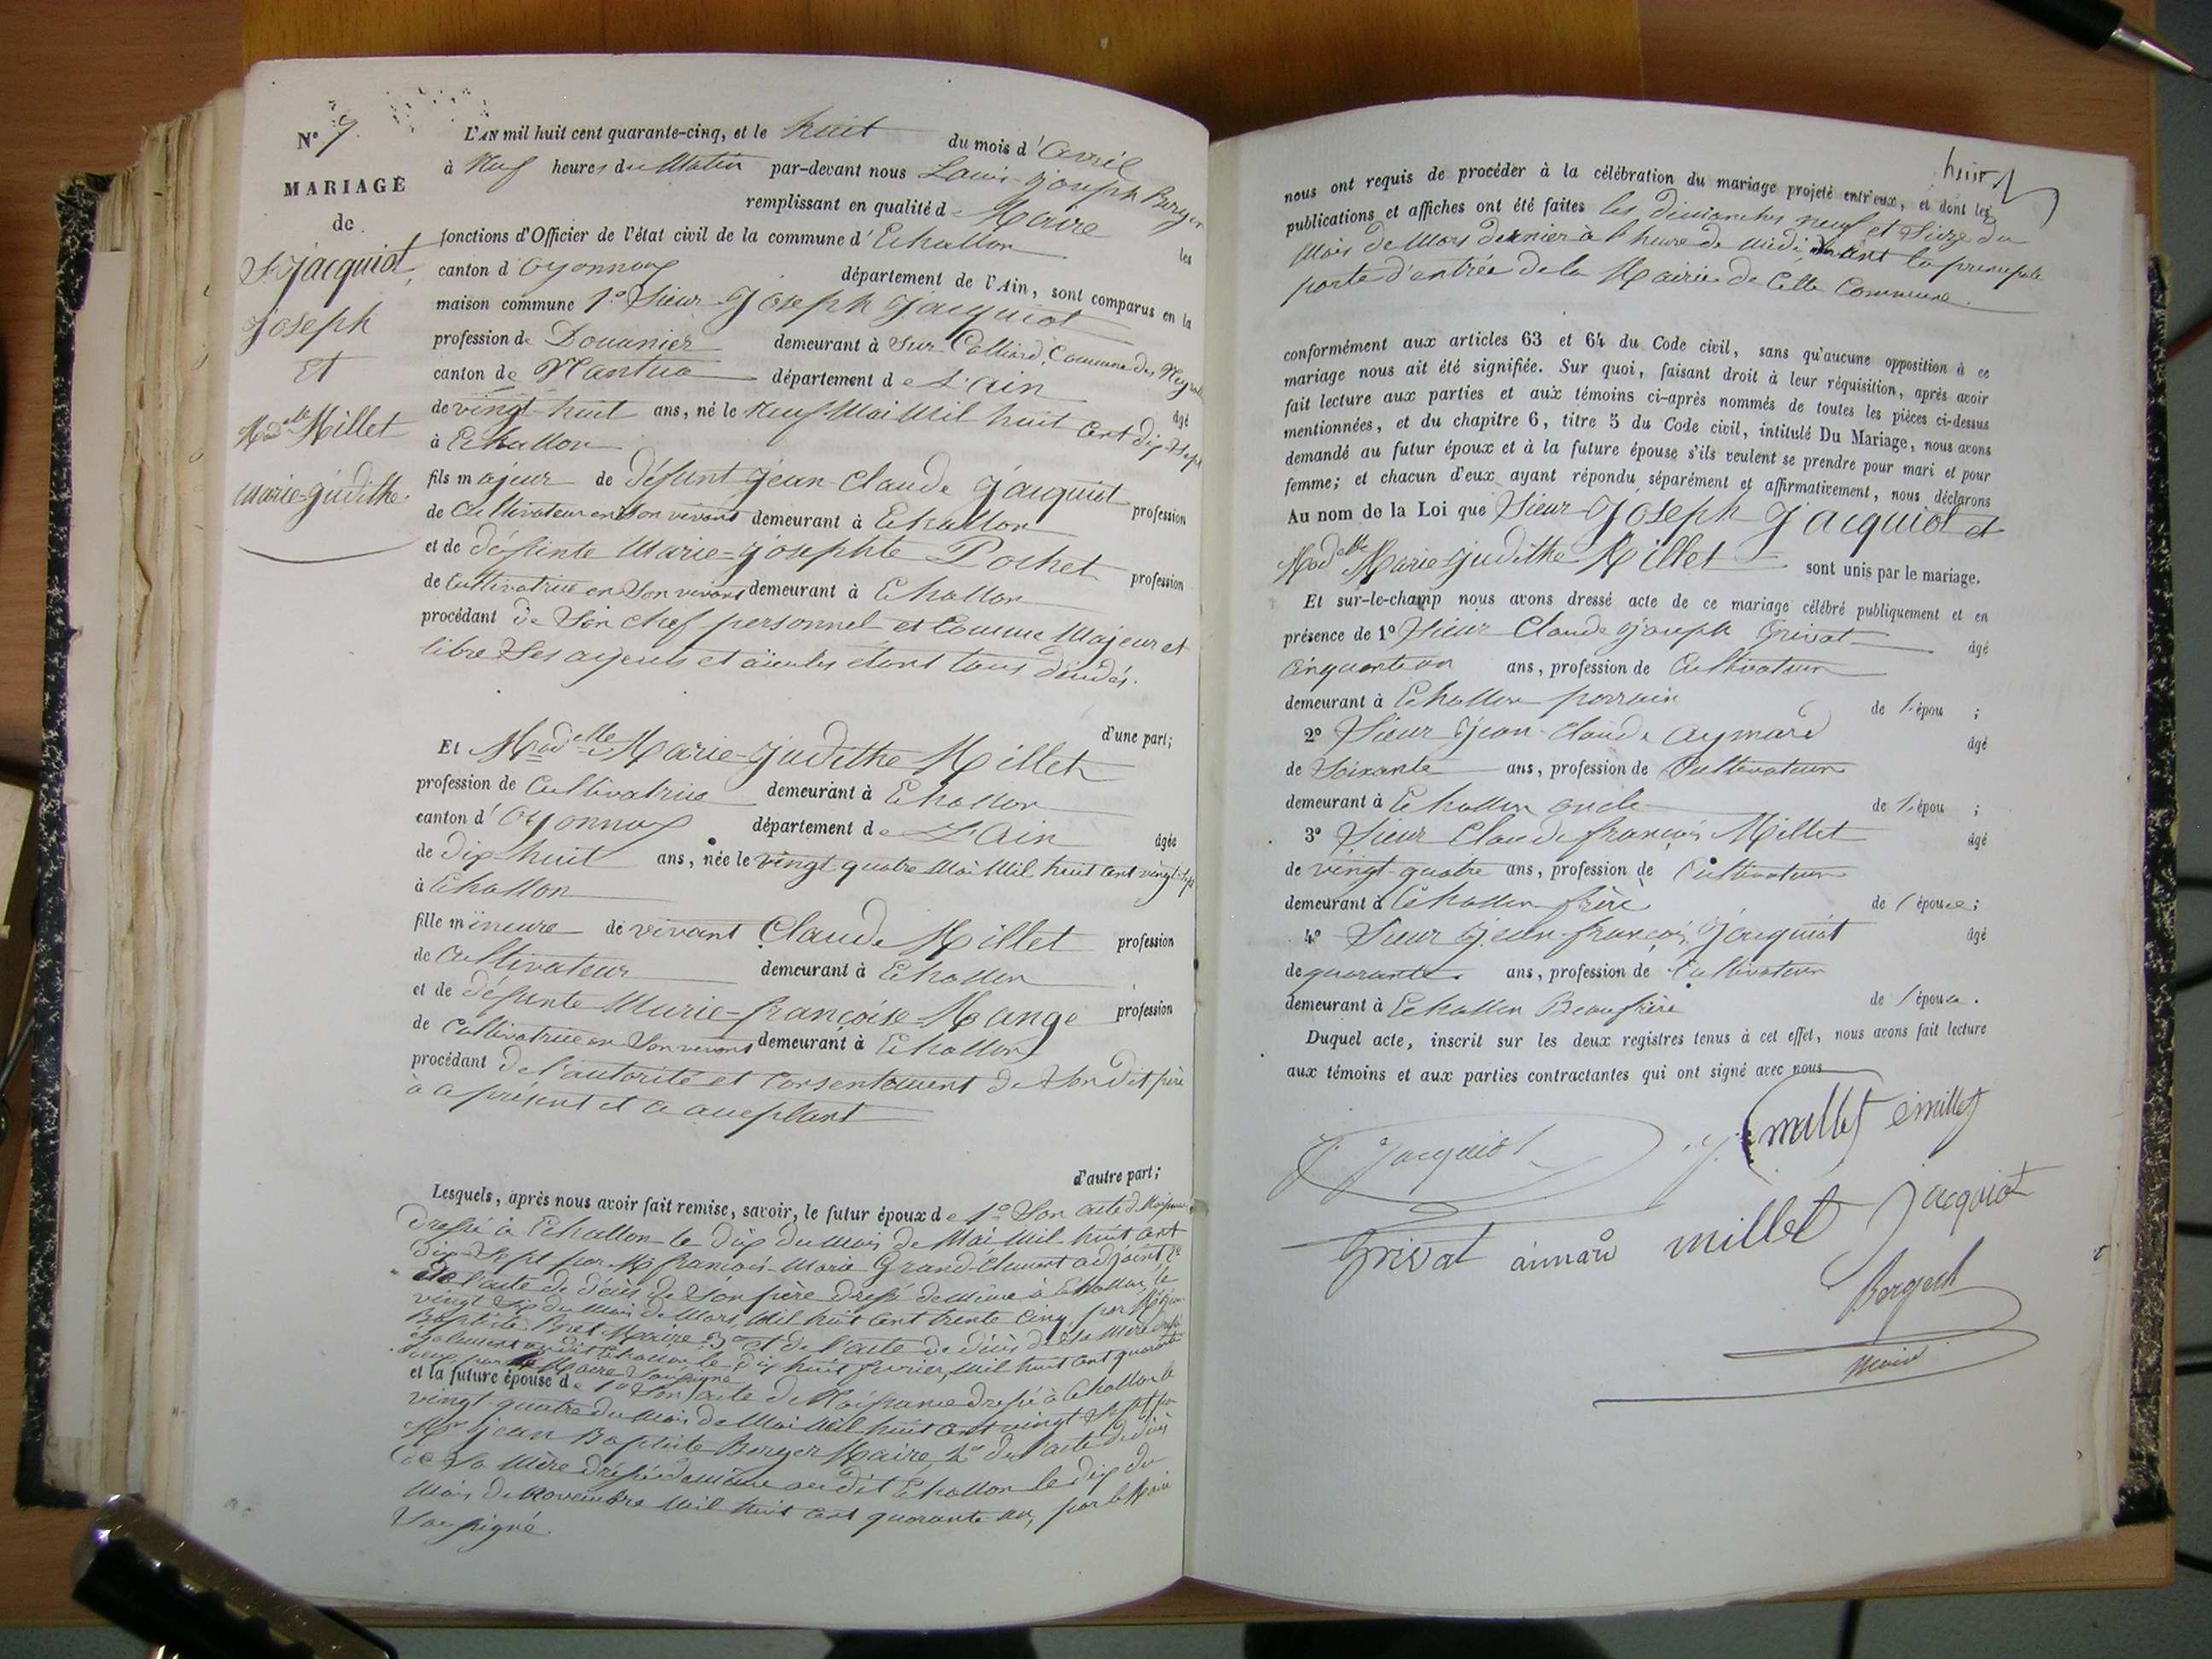 N° 7.
MARIAGE
de
Sr Jacquiot,
Joseph
Et
Madelle Millet
Marie-Judithe
L'AN mil huit cent quarante-cinq, et le huit du mois d'Avril
à Neuf heures du Matin par-devant nous Louis-Joseph Berger
remplissant en qualité de Maire les
fonctions d'Officier de l'état civil de la commune d'Echallon
canton d'Oyonnax département de l'Ain, sont comparus en la
maison commune 1.° Sieur Joseph Jacquiot
profession de Douanier demeurant à Sur Colliard, Commune des
canton de Nantua département de L'Ain âgé
de vingt-huit ans, né le Neuf Mai Mil huit cent dix-Sept
à Echallon
fils majeur de défunt Jean-Claude Jacquiot profession
de Cultivateur en Son vivant demeurant à Echallon
et de défunte Marie-Josephte Pochet profession
de Cultivatrice en Son vivant demeurant à Echallon
procédant de Son chef personnel et Comme Majeur et
libre Ses ayeuls et aïeules étant tous
d'une part;
Et Madelle Marie-Judithe Millet
profession de Cultivatrice demeurant à Echallon
canton d'Oyonnax département de L'Ain âgée
de dix-huit ans, née le vingt-quatre Mai Mil huit cent vingt-Sept
à Echallon
fille mineure de vivant Claude Millet profession
de Cultivateur demeurant à Echallon
et de défunte Marie-françoise Mange profession
de Cultivatrice en Son vivant demeurant à Echallon
procédant de l'autorité et Consentement de Son dit père
à ce présent et ce acceptant
d'autre part;
Lesquels, après nous avoir fait remise, savoir, le futur époux de 1.° Son acte de Naissance
dressé à Echallon le dix du mois de Mai Mil huit cent
dix-Sept par Mr françois-Marie Grand-Clément adjoint 2.°
de l'acte de décès de Son père dressé de même à Echallon, le
vingt Six du Mois de Mars, Mil huit Cent trente Cinq, par Mr Jean
Baptiste Maire 3.° et de l'acte de décès de Sa Mère dressé
également au dit Echallon le dix huit fevrier, Mil huit Cent quarante
deux par le Maire Soussigné
et la future épouse de 1° Son acte de Naissance dressé à Echallon le
vingt-quatre du Mois de Mai Mil huit Cent vingt-Sept par
Mr Jean Baptiste Berger Maire, 2.° de l'acte de décès
de Sa Mère dressé de même au dit Echallon le dix du
Mois de Novembre Mil huit Cent quarante-un, par le Maire
Soussigné.
huit
nous ont requis de procéder à la célébration du mariage projeté entr'eux, et dont les
publications et affiches ont été faites les dimanches neuf et Seize du
Mois de Mars dernier à l'heure de midi, devant la principale
porte d'entrée de la Mairie de Cette Commune.
conformément aux articles 63 et 64 du Code civil, sans qu'aucune opposition à ce
mariage nous ait été signifiée. Sur quoi, faisant droit à leur réquisition, après avoir
fait lecture aux parties et aux témoins ci-après nommés de toutes les pièces ci-dessus
mentionnées, et du chapitre 6, titre 5 du Code civil, intitulé Du Mariage, nous avons
demandé au futur époux et à la future épouse s'ils veulent se prendre pour mari et pour
femme; et chacun d'eux ayant répondu séparément et affirmativement, nous déclarons
Au nom de la Loi que Sieur Joseph Jacquiot et
Madelle Marie-Judithe Millet sont unis par le mariage.
Et sur-le-champ nous avons dressé acte de ce mariage célébré publiquement et en
présence de 1° Sieur Claude Joseph Grivat âgé
Cinquante un ans, profession de Cultivateur
demeurant à Echallon parrain de l'épou ;
2° Sieur Jean-Claude Aymard âgé
de Soixante ans, profession de Cultivateur
demeurant à Echallon oncle de l'épou ;
3° Sieur Claude françois Millet âgé
de vingt-quatre ans, profession de Cultivateur
demeurant à Echallon frère de l'épouse;
4° Sieur Jean-françois Jacquiot âgé
de quarante ans, profession de Cultivateur
demeurant à Echallon Beaufrère de l'épouse.
Duquel acte, inscrit sur les deux registres tenus à cet effet, nous avons fait lecture
aux témoins et aux parties contractantes qui ont signé avec nous
J. Jacquiot J. millet Cmillet
Grivat aimard millet Jacquiot
Berger
Maire